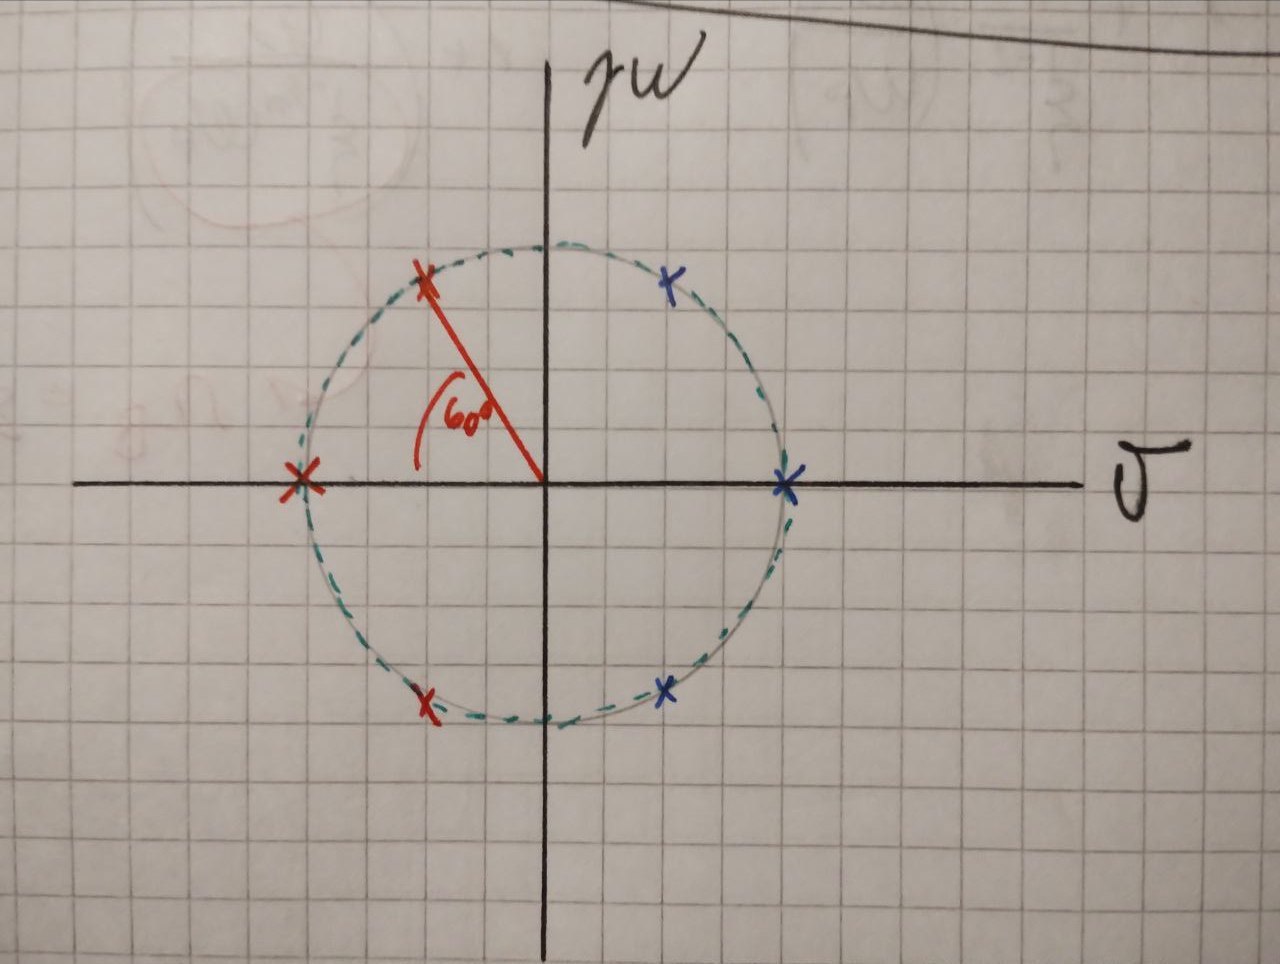 jw
60°
σ